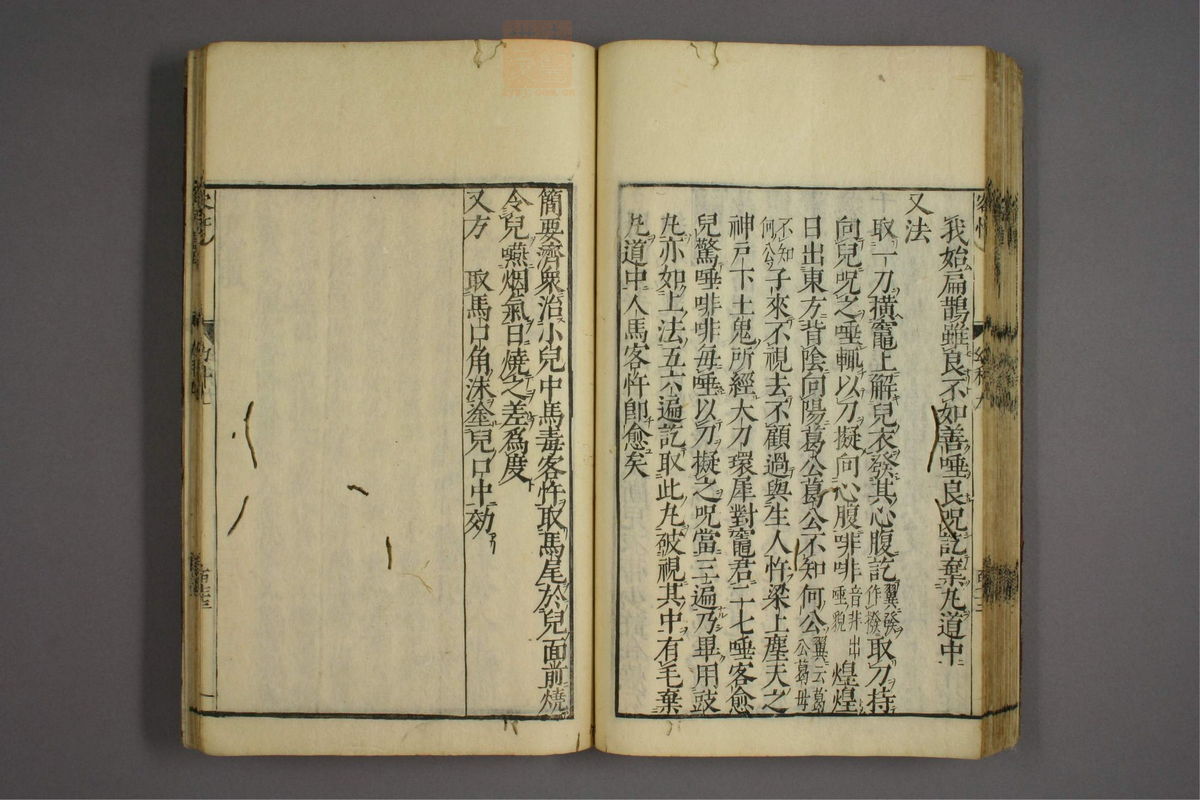 我始扁鵲雖良不如善唾良咒訖棄丸道中
又法
取一刀横竈上解兒衣發其心腹訖翼發作撥取刀持
向兒咒之唾輒以刀擬向心腹啡啡音非出唾貌煌煌
日出東方背陰向陽葛公葛公不知何公翼云葛公葛母
不知何公子來不視去不顧過與生人忤梁上塵天之
神戸下土鬼所經大刀環犀對竈君二七唾客愈
兒驚唾啡啡每唾以刀擬之咒當三遍乃畢用豉
丸亦如上法五六遍訖取此丸破視其中有毛棄
丸道中人馬客忤即愈矣
簡要濟衆治小兒中馬毒客忤取馬尾於兒面前燒
令兒嚥烟氣日燒之差爲度
又方 取馬口角沫塗兒口中効